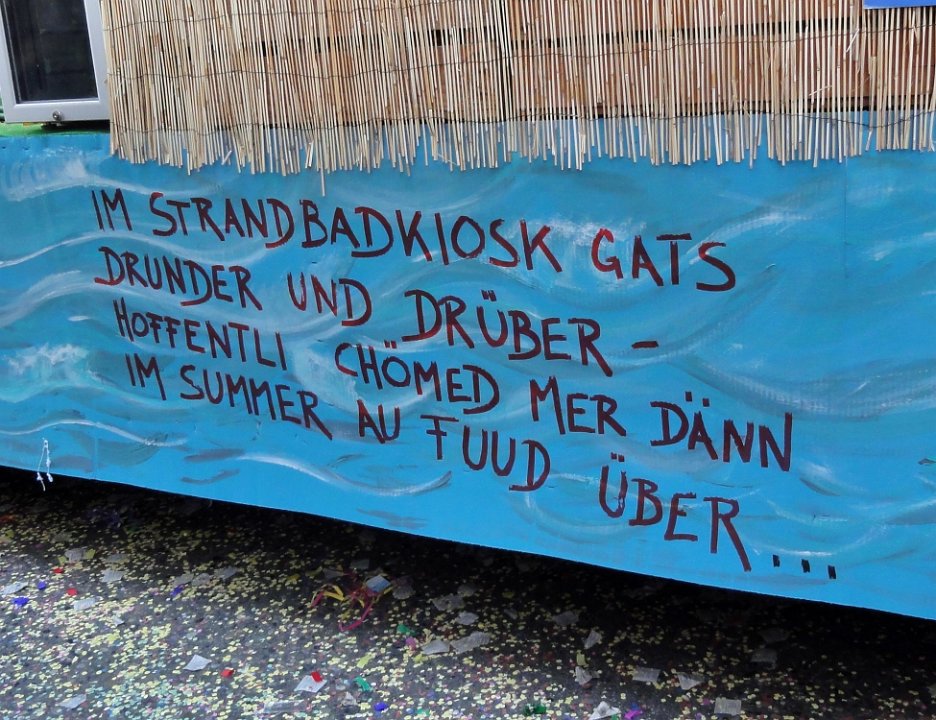 IM STRANDBADKIOSK GATS
DRUNDER UND DRÜBER –
HOFFENTLI CHÖMED MER DÄNN
IM SUMMER AU FUUD ÜBER ...